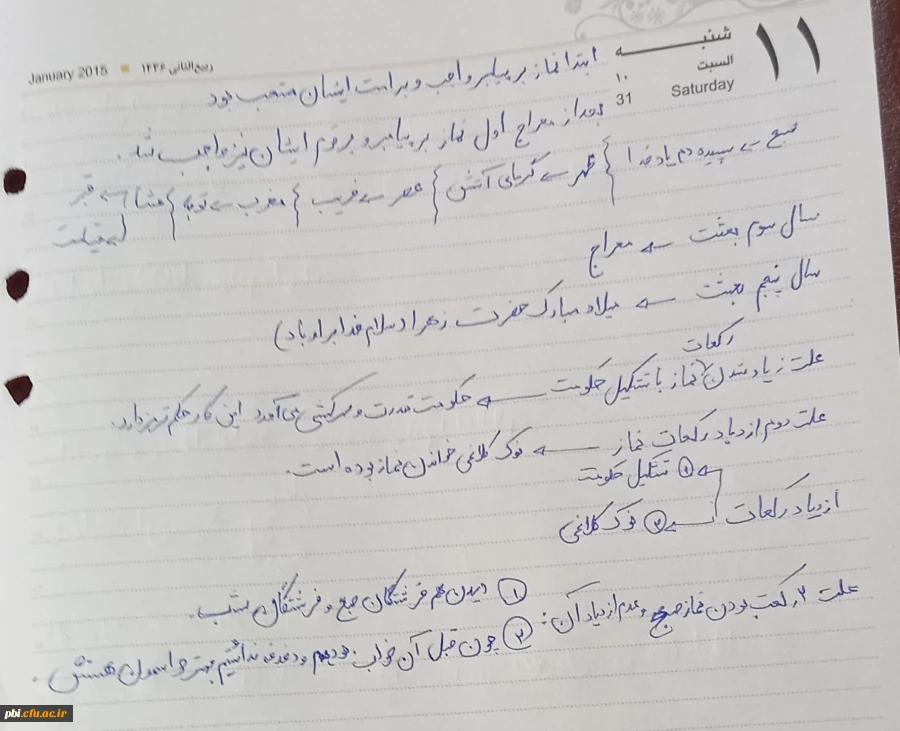 ۱۱
شنبه
السبت
۱۰
Saturday
31
January 2015 ربیع‌الثانی ۱۴۳۶
ابتدا نماز بر پیامبر واجب و بر امت ایشان مستحب بود
بعد از معراج اول نماز بر پیامبر و بر قوم ایشان نیز واجب شد.
صبح سپیده دم یاد خدا } ظهر گرمای آتش } عصر فریب } مغرب توبه } عشا قبر
قیامت
سال سوم بعثت معراج
سال پنجم بعثت میلاد مبارک حضرت زهرا (سلام خدا بر او باد)
رکعات
علت زیاد شدن نماز با تشکیل حکومت حکومت قدرت و سرکشی می‌آورد این کار حکم ترمز دارد.
علت دوم ازدیاد رکعات نماز نوک کلاغی خواندن نماز بوده است.
① تشکیل حکومت
ازدیاد رکعات ② نوک کلاغی
علت ۲ رکعت بودن نماز صبح و عدم ازدیاد آن: ① دیدن هم فرشتگان صبح و فرشتگان شب.
② چون قبل آن خواب بودیم و دغدغه نداشتیم بهتر حواسمون هستش.
pbi.cfu.ac.ir